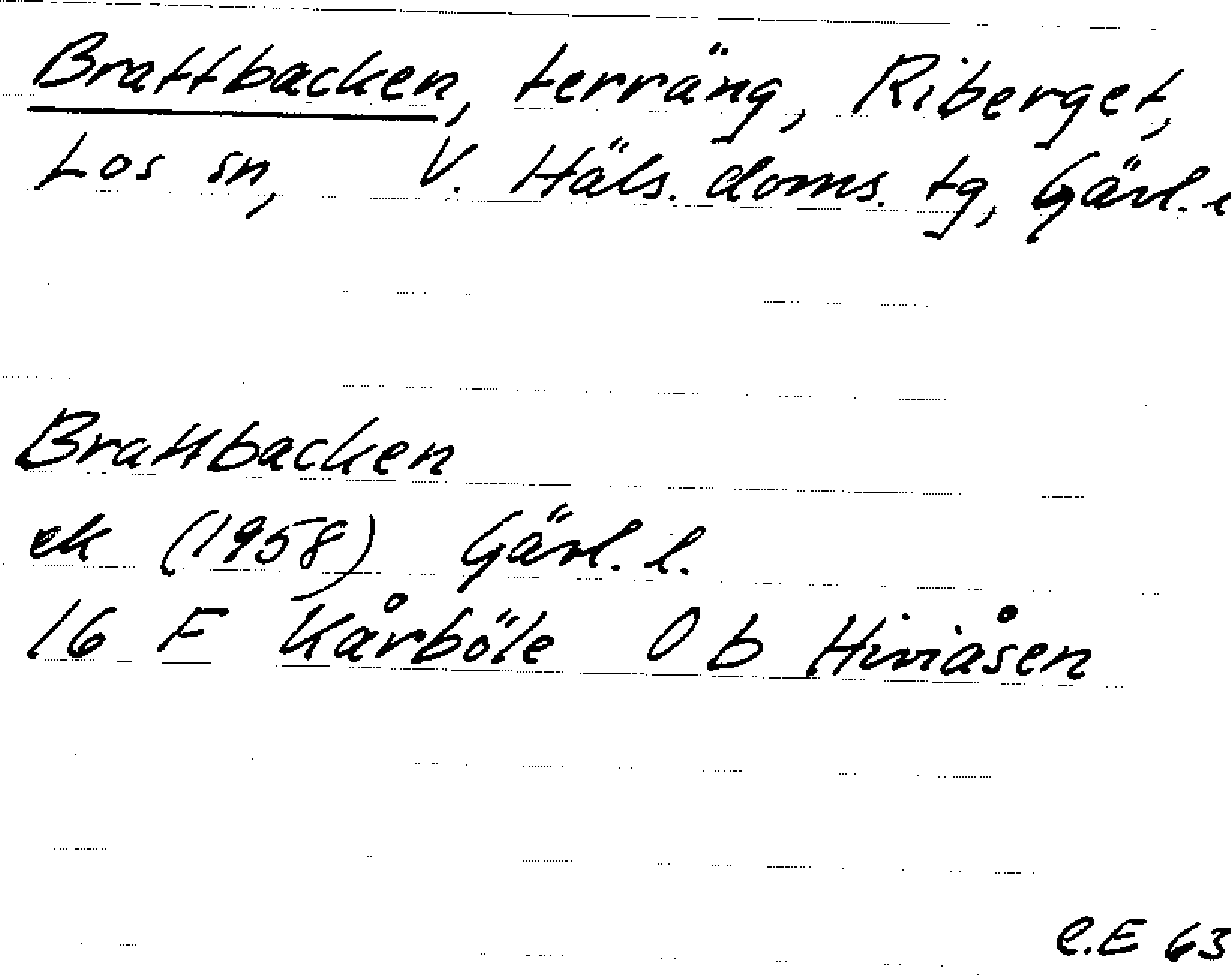 Brattbacken, terräng, Riberget,
Los sn, V. Häls. doms. tg, Gävl. l
Brattbacken
ek (1958) Gävl. l.
16 F Kårböle 0 b Hiviåsen
C.E 63